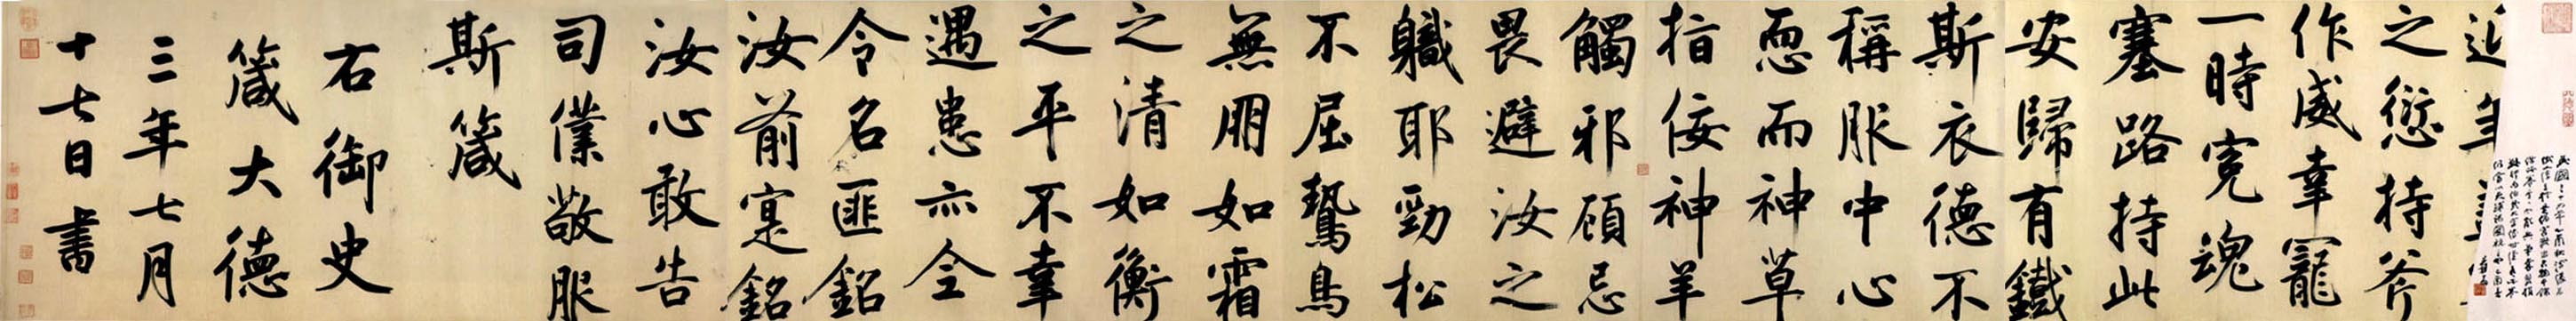 近年
之愆持斧
作威幸寵
一時寃魂
塞路持此
安歸有鐵
斯衣德不
稱服中心
恧而神草
指佞神羊
觸邪顧忌
畏避汝之
軄耶勁松
不屈鷙鳥
無朋如霜
之清如衡
之平不幸
遇患亦全
令名匪銘
汝前寔銘
汝心敢告
司僕敬服
斯箴
右御史
箴大德
三年七月
十七日書